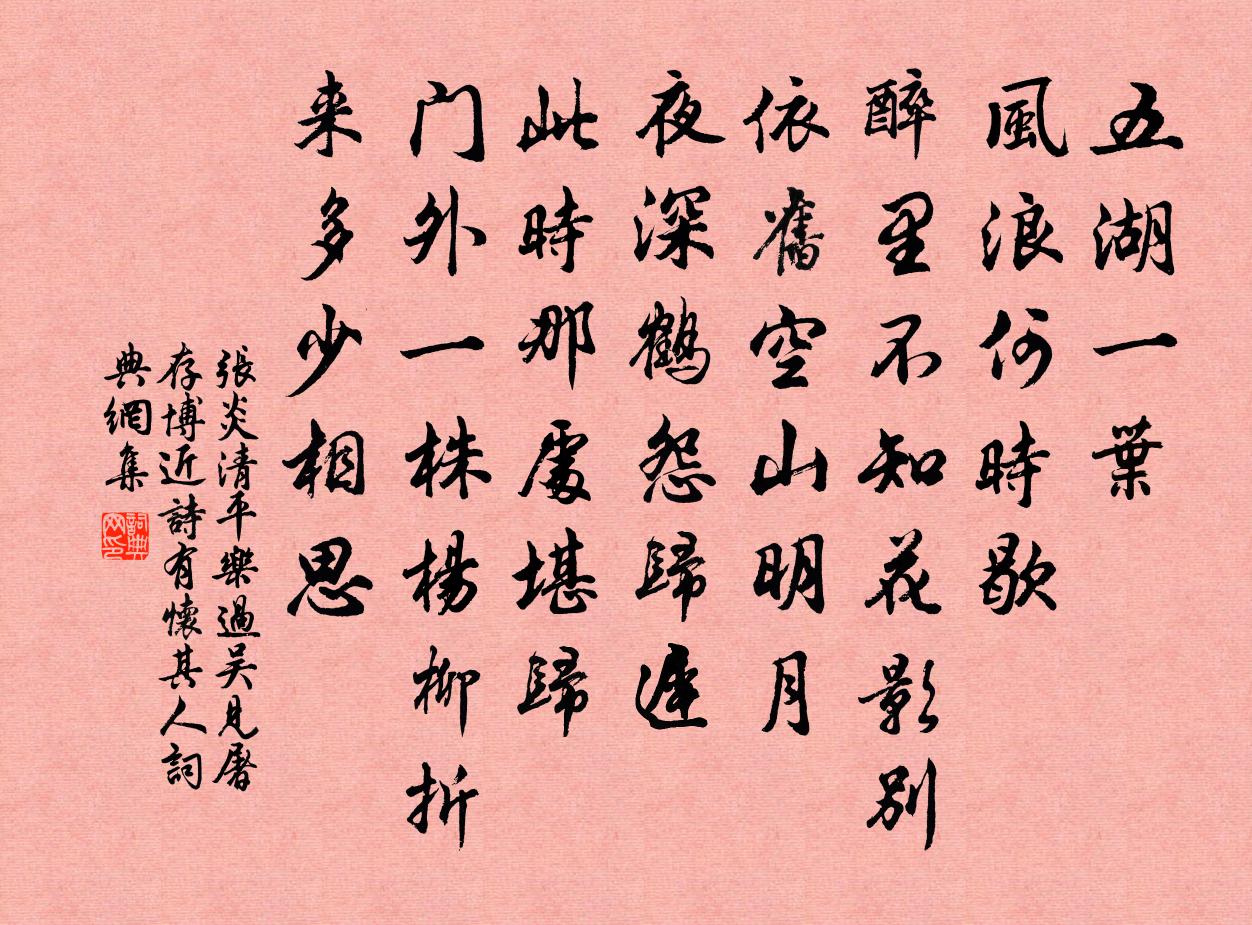 五湖一葉
風浪何時歇
醉里不知花影別
依舊空山明月
夜深鶴怨歸遲
此時那處堪歸
門外一株楊柳折
来多少相思
張炎清平樂過吴見屠
存博近詩有懷其人詞
典網集
詞典網印